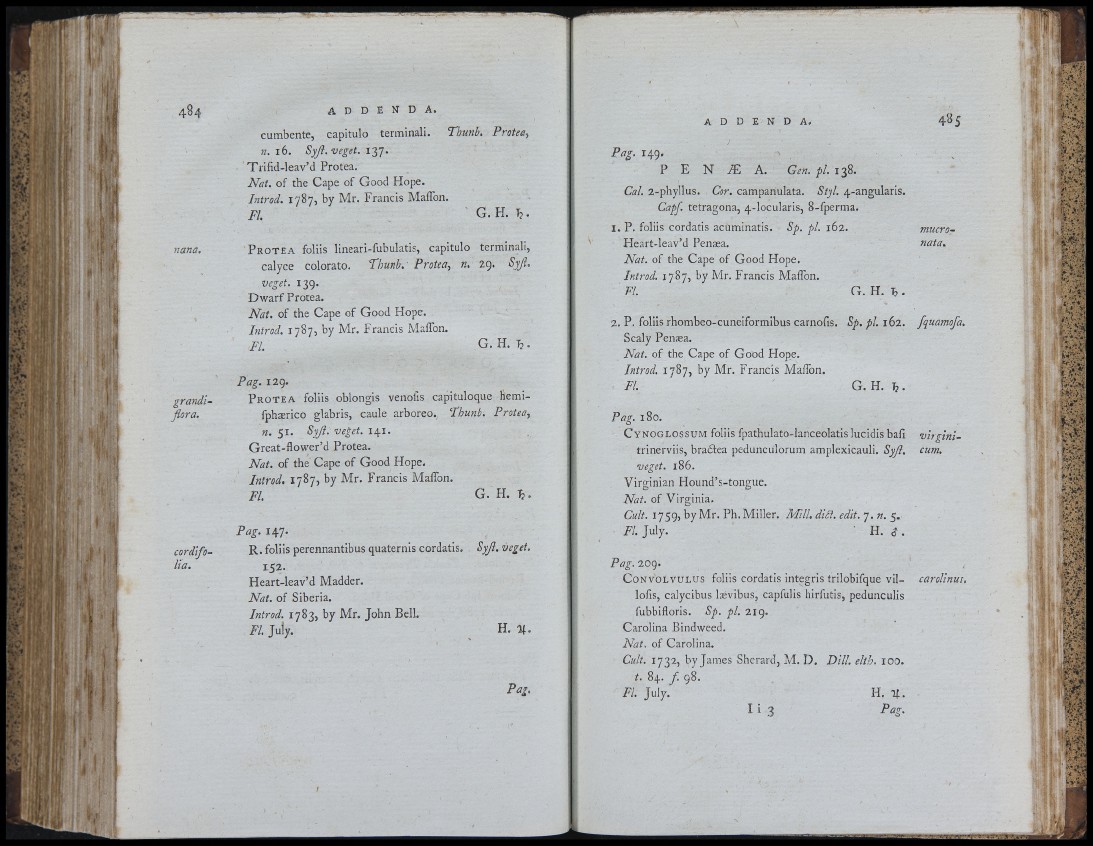 484 A D D E N D A.
cumbente, capitulo terminali. Thunb. Protea,
n. 16. Syſt. veget. 137.
Trifid-leav'd Protea.
Nat. of the Cape of Good Hope.
Introd. 1787, by Mr. Francis Maſſon.
Fl. G. H. ♄.
nana. PROTEA foliis lineari-ſubulatis, capitulo terminali,
calyce colorato. Thunb. Protea, n. 29. Syſt.
veget. 139.
Dwarf Protea.
Nat. of the Cape of Good Hope.
Introd. 1787, by Mr. Francis Maſſon.
Fl. G. H. ♄.
Pag. 129.
grandi- PROTEA foliis oblongis venoſis capituloque hemi-
flora. ſphærico glabris, caule arboreo. Thunb. Protea,
n. 51. Syſt. veget. 141.
Great-flower'd Protea.
Nat. of the Cape of Good Hope.
Introd. 1787, by Mr. Francis Maſſon.
Fl. G. H. ♄.
Pag. 147.
cordifo- R. foliis perennantibus quaternis cordatis. Syſt. veget.
lia. 152.
Heart-leav'd Madder.
Nat. of Siberia.
Introd. 1783, by Mr. John Bell.
Fl. July. H. ♃.
Pag.
A D D E N D A. 485
Pag. 149.
P E N Æ A. Gen. pl. 138.
Cal. 2-phyllus. Cor. campanulata. Styl. 4-angularis.
Capſ. tetragona, 4-locularis, 8-ſperma.
1. P. foliis cordatis acuminatis. Sp. pl. 162. mucro-
Heart-leav'd Penæa. nata.
Nat. of the Cape of Good Hope.
Introd. 1787, by Mr. Francis Maſſon.
Fl. G. H. ♄.
2. P. foliis rhombeo-cuneiformibus carnoſis. Sp. pl. 162. ſquamoſa.
Scaly Penæa.
Nat. of the Cape of Good Hope.
Introd. 1787, by Mr. Francis Maſſon.
Fl. G. H. ♄.
Pag. 180.
CYNOGLOSSUM foliis ſpathulato-lanceolatis lucidis baſi virgini-
trinerviis, bractea pedunculorum amplexicauli. Syſt. cum.
veget. 186.
Virginian Hound's-tongue.
Nat. of Virginia.
Cult. 1759, by Mr. Ph. Miller. Mill. dict. edit. 7. n. 5.
Fl. July. H. ♂.
Pag. 209.
CONVOLVULUS foliis cordatis integris trilobiſque vil- carolinus.
loſis, calycibus lævibus, capſulis hirſutis, pedunculis
ſubbifloris. Sp. pl. 219.
Carolina Bindweed.
Nat. of Carolina.
Cult. 1732, by James Sherard, M. D. Dill. elth. 100.
t. 84. f. 98.
Fl. July. H. ♃.
I i 3 Pag.